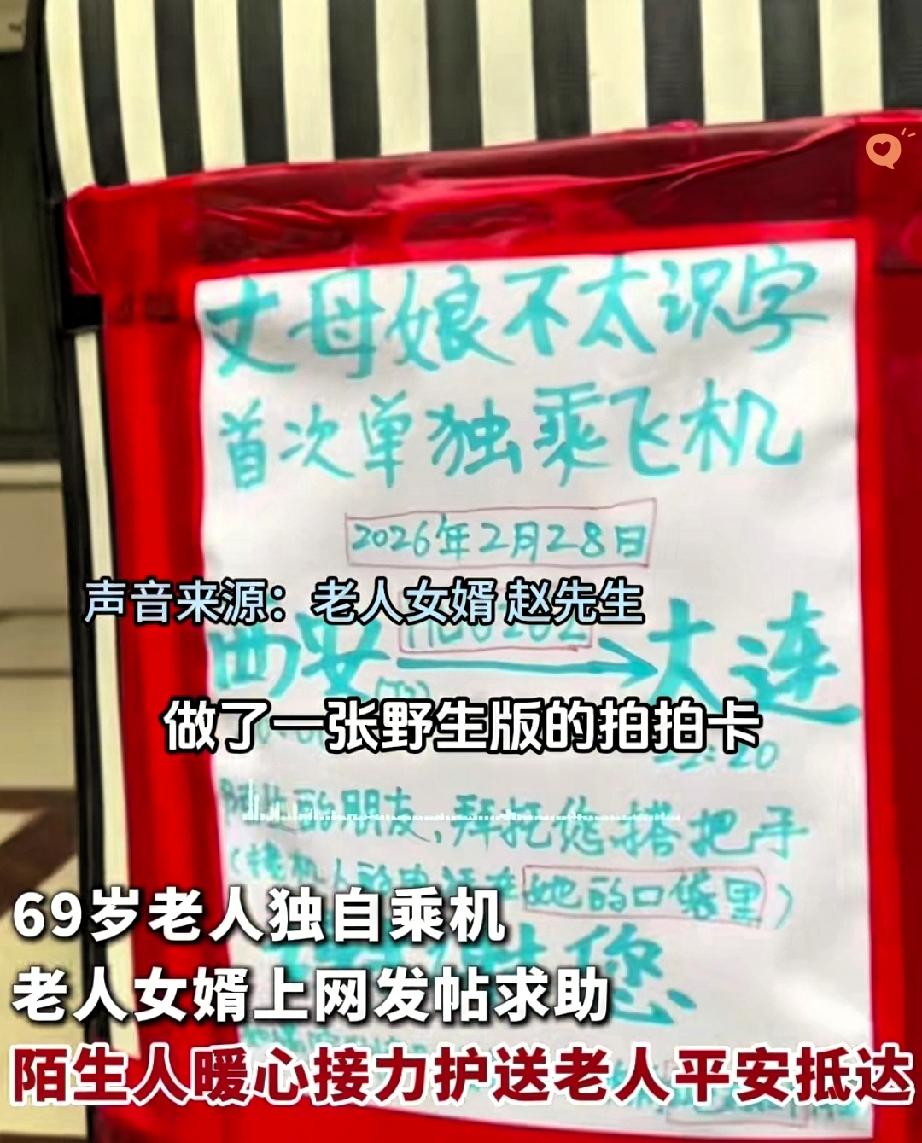 丈母娘不太识字
首次单独乘飞机
2026年2月28日
声音来源：老人女婿 赵先生
西安
大连
做了一张野生版的拍拍卡
22:20
的朋友，拜托您搭把手
她的口袋里）
谢谢您
69岁老人独自乘机
老人女婿上网发帖求助
陌生人暖心接力护送老人平安抵达